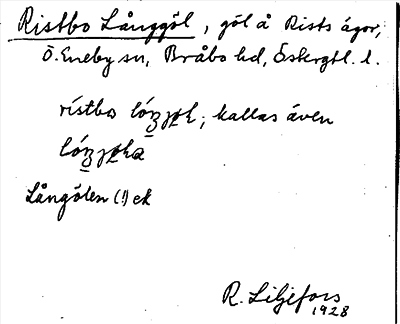 Ristbo Långgöl, göl å Rists ägor,
Ö. Eneby sn, Bråbo hd, Öskrgtl. l.
rístbo ; kallas även
Långölen (!) ek
R. Liljefors
1928